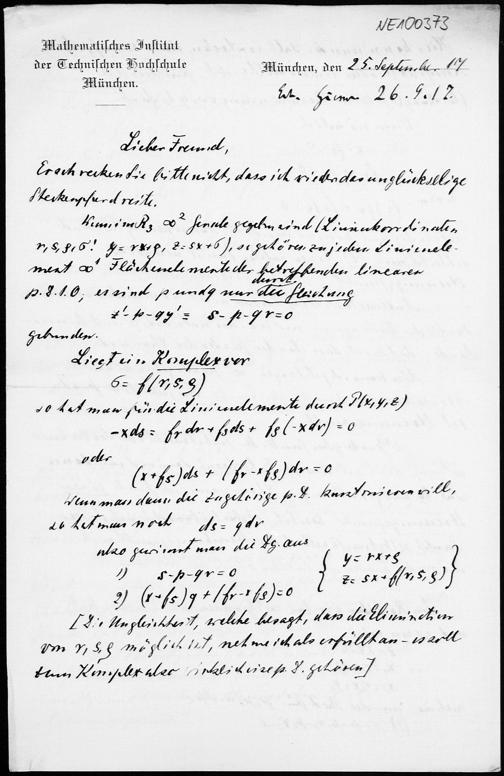 NE100373
Mathematisches Institut
der Technischen Hochschule
München.
München, den 25. September 17
26.9.17.
Lieber Freund,
Erschrecken Sie bitte nicht, dass ich wieder das unglückselige
Steckenpferd reite.
Wenn im R₃ ∞² Gerade gegeben sind (Linienkoordinaten
r, s, ρ, σ! y = rx+ρ, z = sx+σ), so gehören zu jedem Linienele-
ment ∞¹ Flächenelemente der betreffenden linearen
p.D.1.O., es sind p und q nur durch die Gleichung
z' - p - qy' = s - p - qr = 0
gebunden.
Liegt ein Komplex vor
σ = f(r, s, ρ)
so hat man für die Linienelemente durch P(x, y, z)
-xds = fr dr + fs ds + fρ(-xdr) = 0
oder
(x+fs)ds + (fr - xfρ)dr = 0
Wenn man dann die zugehörige p.D. konstruieren will,
so hat man noch ds = qdr
also gewinnt man die Dg. aus
1) s - p - qr = 0
2) (x+fs)q + (fr - xfρ) = 0
{ y = rx+ρ
z = sx + f(r, s, ρ) }
[Die Ungleichheit, welche besagt, dass die Elimination
von r, s, ρ möglich ist, nehme ich als erfüllt an - es soll
zum Komplex also wirklich eine p.D. gehören]